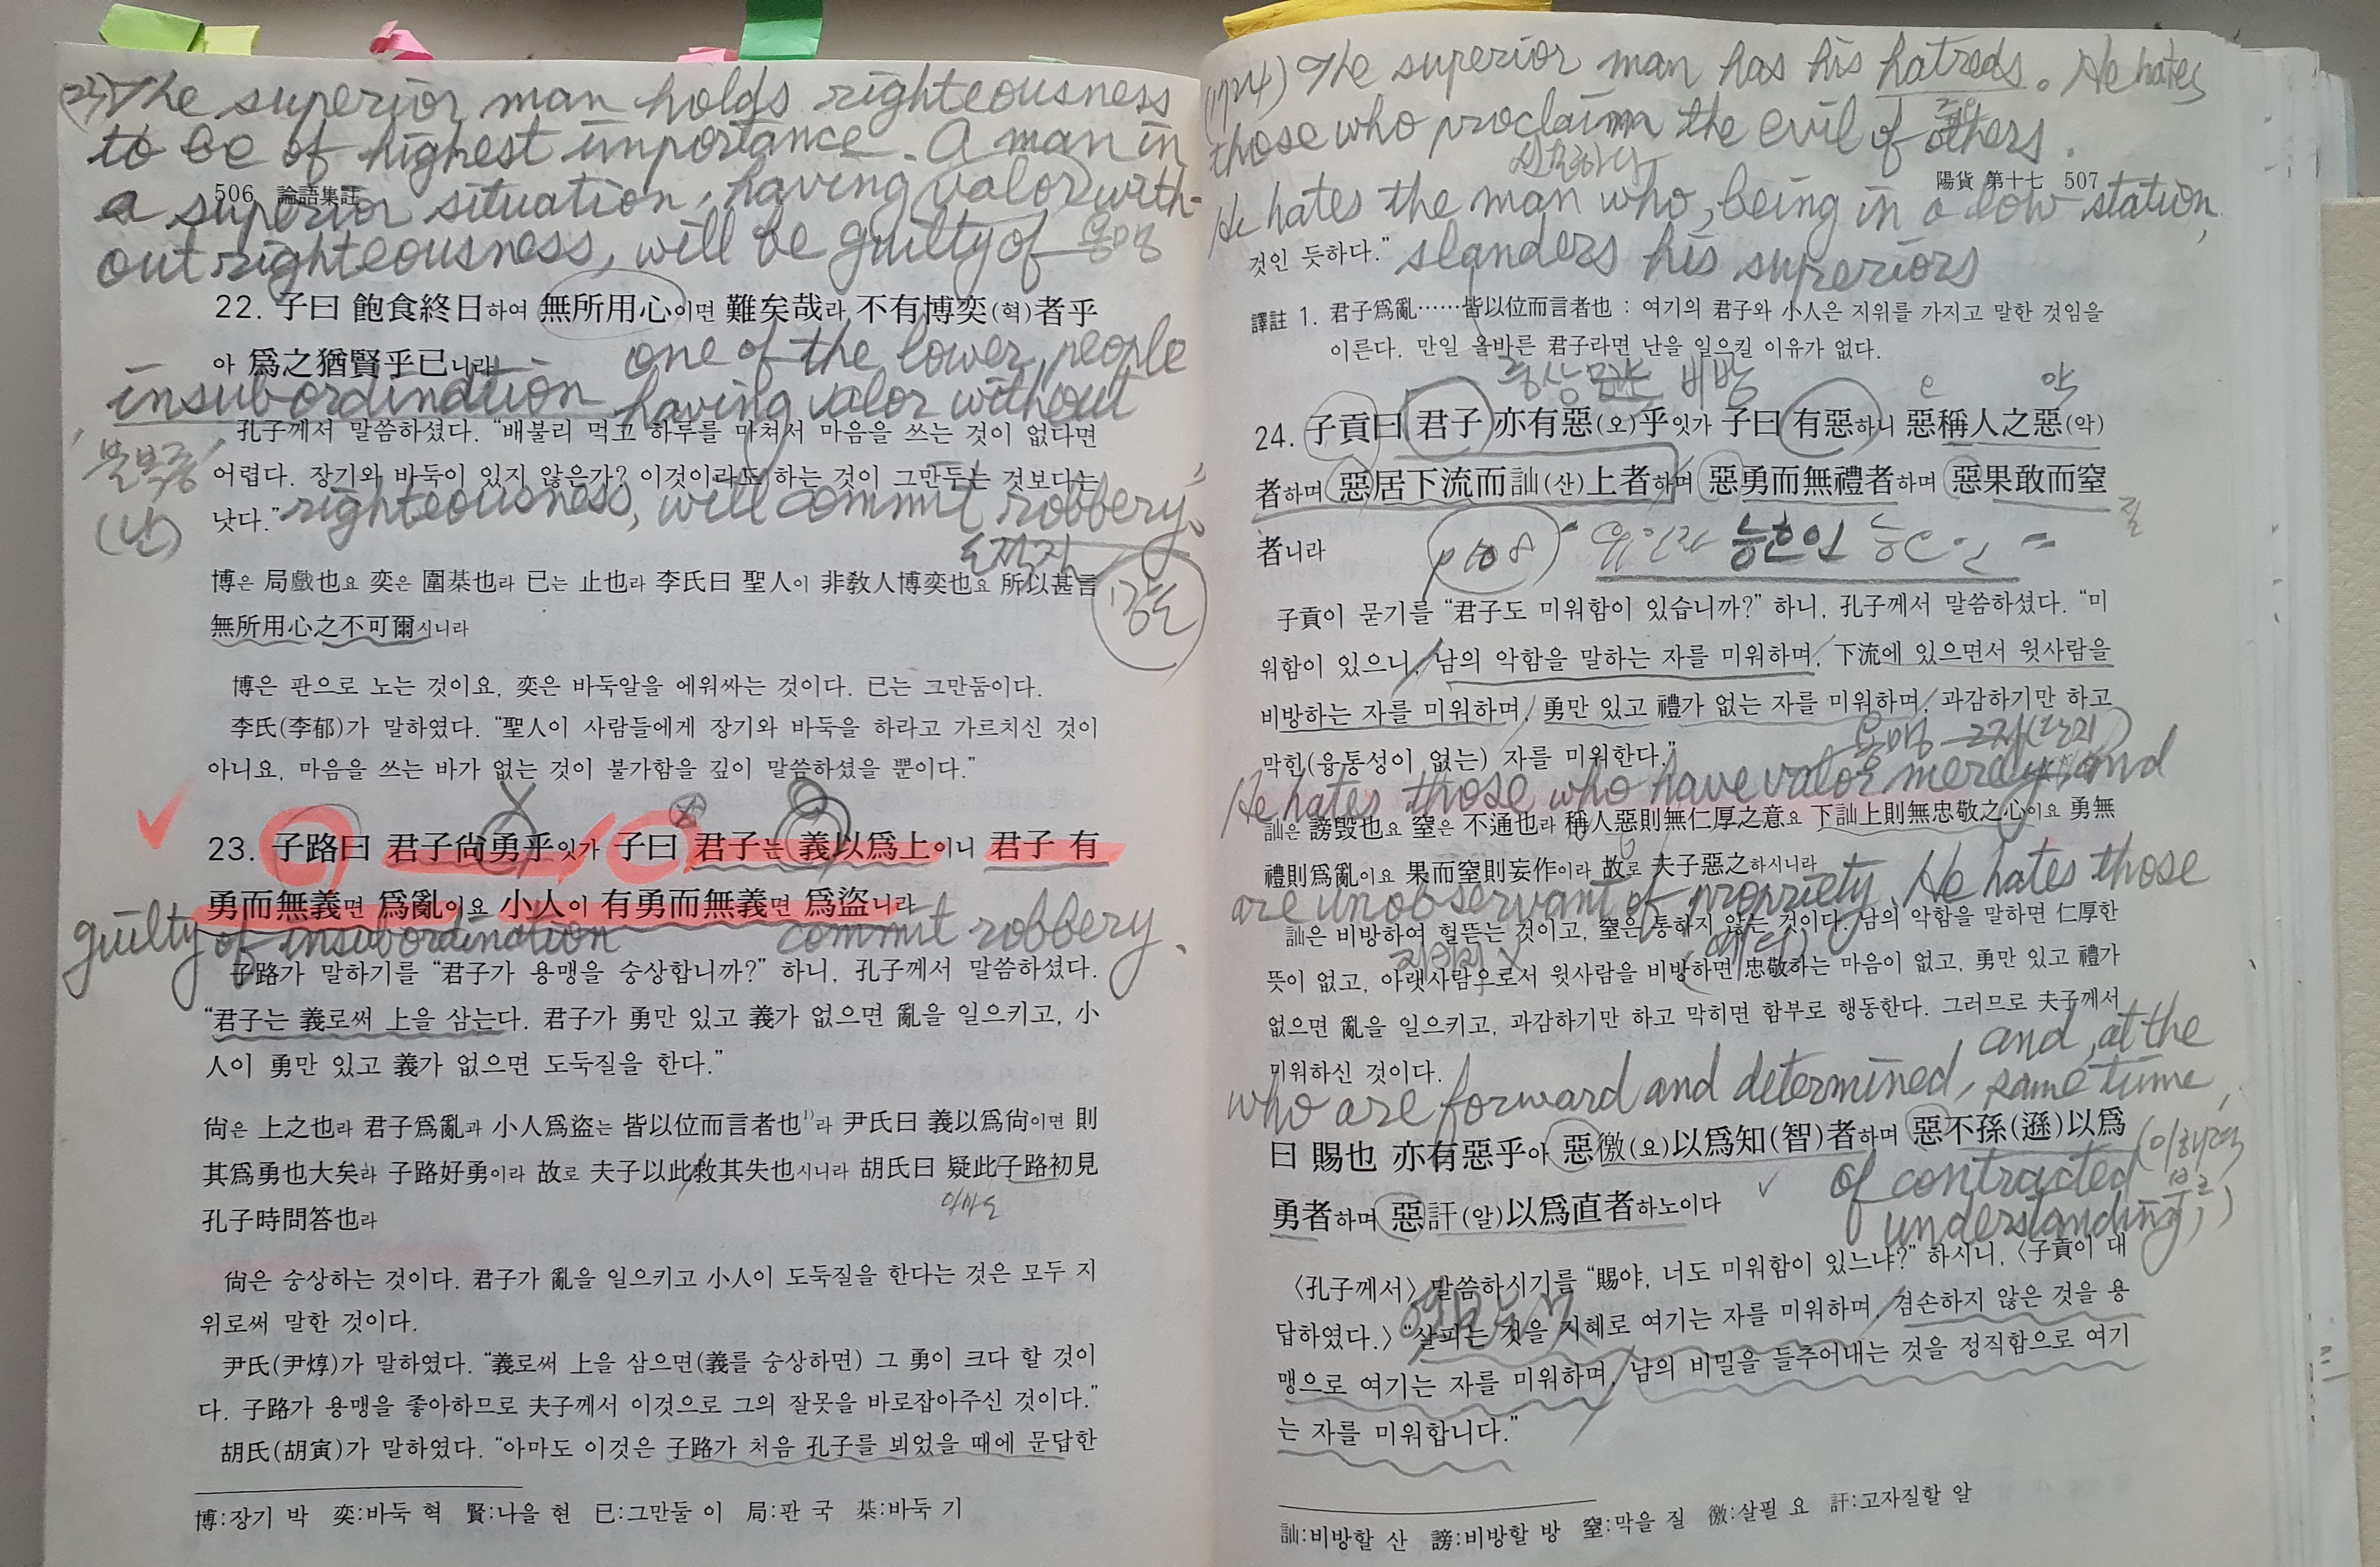 (23) The superior man holds righteousness
to be of highest importance. A man in
506 論語集註
a superior situation, having valor with-
out righteousness, will be guilty of 용맹
22. 子曰 飽食終日하여 無所用心이면 難矣哉라 不有博奕(혁)者乎
아 爲之猶賢乎已니라
one of the lower people
insubordination having valor without
불복종
(난)
孔子께서 말씀하셨다. “배불리 먹고 하루를 마쳐서 마음을 쓰는 것이 없다면
어렵다. 장기와 바둑이 있지 않은가? 이것이라도 하는 것이 그만두는 것보다는
낫다.”
righteousness, will commit robbery.
도적질
강도
博은 局戲也요 奕은 圍棊也라 已는 止也라 李氏曰 聖人이 非敎人博奕也요 所以甚言
無所用心之不可爾시니라
博은 판으로 노는 것이요, 奕은 바둑알을 에워싸는 것이다. 已는 그만둠이다.
李氏(李郁)가 말하였다. “聖人이 사람들에게 장기와 바둑을 하라고 가르치신 것이
아니요, 마음을 쓰는 바가 없는 것이 불가함을 깊이 말씀하셨을 뿐이다.”
23. 子路曰 君子尙勇乎잇가 子曰 君子는 義以爲上이니 君子 有
勇而無義면 爲亂이요 小人이 有勇而無義면 爲盜니라
guilty of insubordination commit robbery.
子路가 말하기를 “君子가 용맹을 숭상합니까?” 하니, 孔子께서 말씀하셨다.
“君子는 義로써 上을 삼는다. 君子가 勇만 있고 義가 없으면 亂을 일으키고, 小
人이 勇만 있고 義가 없으면 도둑질을 한다.”
尙은 上之也라 君子爲亂과 小人爲盜는 皆以位而言者也1)라 尹氏曰 義以爲尙이면 則
其爲勇也大矣라 子路好勇이라 故로 夫子以此救其失也시니라 胡氏曰 疑此子路初見
아마도
孔子時問答也라
尙은 숭상하는 것이다. 君子가 亂을 일으키고 小人이 도둑질을 한다는 것은 모두 지
위로써 말한 것이다.
尹氏(尹焞)가 말하였다. “義로써 上을 삼으면(義를 숭상하면) 그 勇이 크다 할 것이
다. 子路가 용맹을 좋아하므로 夫子께서 이것으로 그의 잘못을 바로잡아주신 것이다.”
胡氏(胡寅)가 말하였다. “아마도 이것은 子路가 처음 孔子를 뵈었을 때에 문답한
博:장기 박 奕:바둑 혁 賢:나을 현 已:그만둘 이 局:판 국 棊:바둑 기
(17.24) The superior man has his hatreds. He hates
those who proclaim the evil of others.
陽貨 第十七 507
He hates the man who, being in a low station,
것인 듯하다.”
slanders his superiors
譯註 1. 君子爲亂……皆以位而言者也 : 여기의 君子와 小人은 지위를 가지고 말한 것임을
이른다. 만일 올바른 君子라면 난을 일으킬 이유가 없다.
비방 악
24. 子貢曰 君子 亦有惡(오)乎잇가 子曰 有惡하니 惡稱人之惡(악)
者하며 惡居下流而訕(산)上者하며 惡勇而無禮者하며 惡果敢而窒
질
者니라
p108
子貢이 묻기를 “君子도 미워함이 있습니까?” 하니, 孔子께서 말씀하셨다. “미
워함이 있으니, 남의 악함을 말하는 자를 미워하며, 下流에 있으면서 윗사람을
비방하는 자를 미워하며, 勇만 있고 禮가 없는 자를 미워하며, 과감하기만 하고
막힌(융통성이 없는) 자를 미워한다.”
용맹
He hates those who have valor merely, and
訕은 謗毁也요 窒은 不通也라 稱人惡則無仁厚之意요 下訕上則無忠敬之心이요 勇無
禮則爲亂이요 果而窒則妄作이라 故로 夫子惡之하시니라
are unobservant of propriety. He hates those
訕은 비방하여 헐뜯는 것이고, 窒은 통하지 않는 것이다. 남의 악함을 말하면 仁厚한
뜻이 없고, 아랫사람으로서 윗사람을 비방하면 忠敬하는 마음이 없고, 勇만 있고 禮가
없으면 亂을 일으키고, 과감하기만 하고 막히면 함부로 행동한다. 그러므로 夫子께서
미워하신 것이다.
who are forward and determined, and, at the
same time,
曰 賜也 亦有惡乎아 惡徼(요)以爲知(智)者하며 惡不孫(遜)以爲
of contracted
understanding,
勇者하며 惡訐(알)以爲直者하노이다
〈孔子께서〉 말씀하시기를 “賜야, 너도 미워함이 있느냐?” 하시니, 〈子貢이 대
답하였다.〉 “살피는 것을 지혜로 여기는 자를 미워하며, 겸손하지 않은 것을 용
맹으로 여기는 자를 미워하며, 남의 비밀을 들추어내는 것을 정직함으로 여기
는 자를 미워합니다.”
訕:비방할 산 謗:비방할 방 窒:막을 질 徼:살필 요 訐:고자질할 알